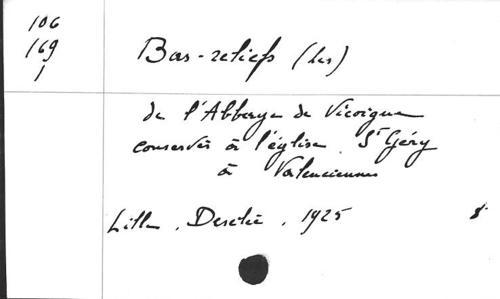 106
169
1
Bas-reliefs (les)
de l'Abbaye de Vicoigne
conservés à l'église St Géry
à Valenciennes
Lille, Desclée, 1925 8°